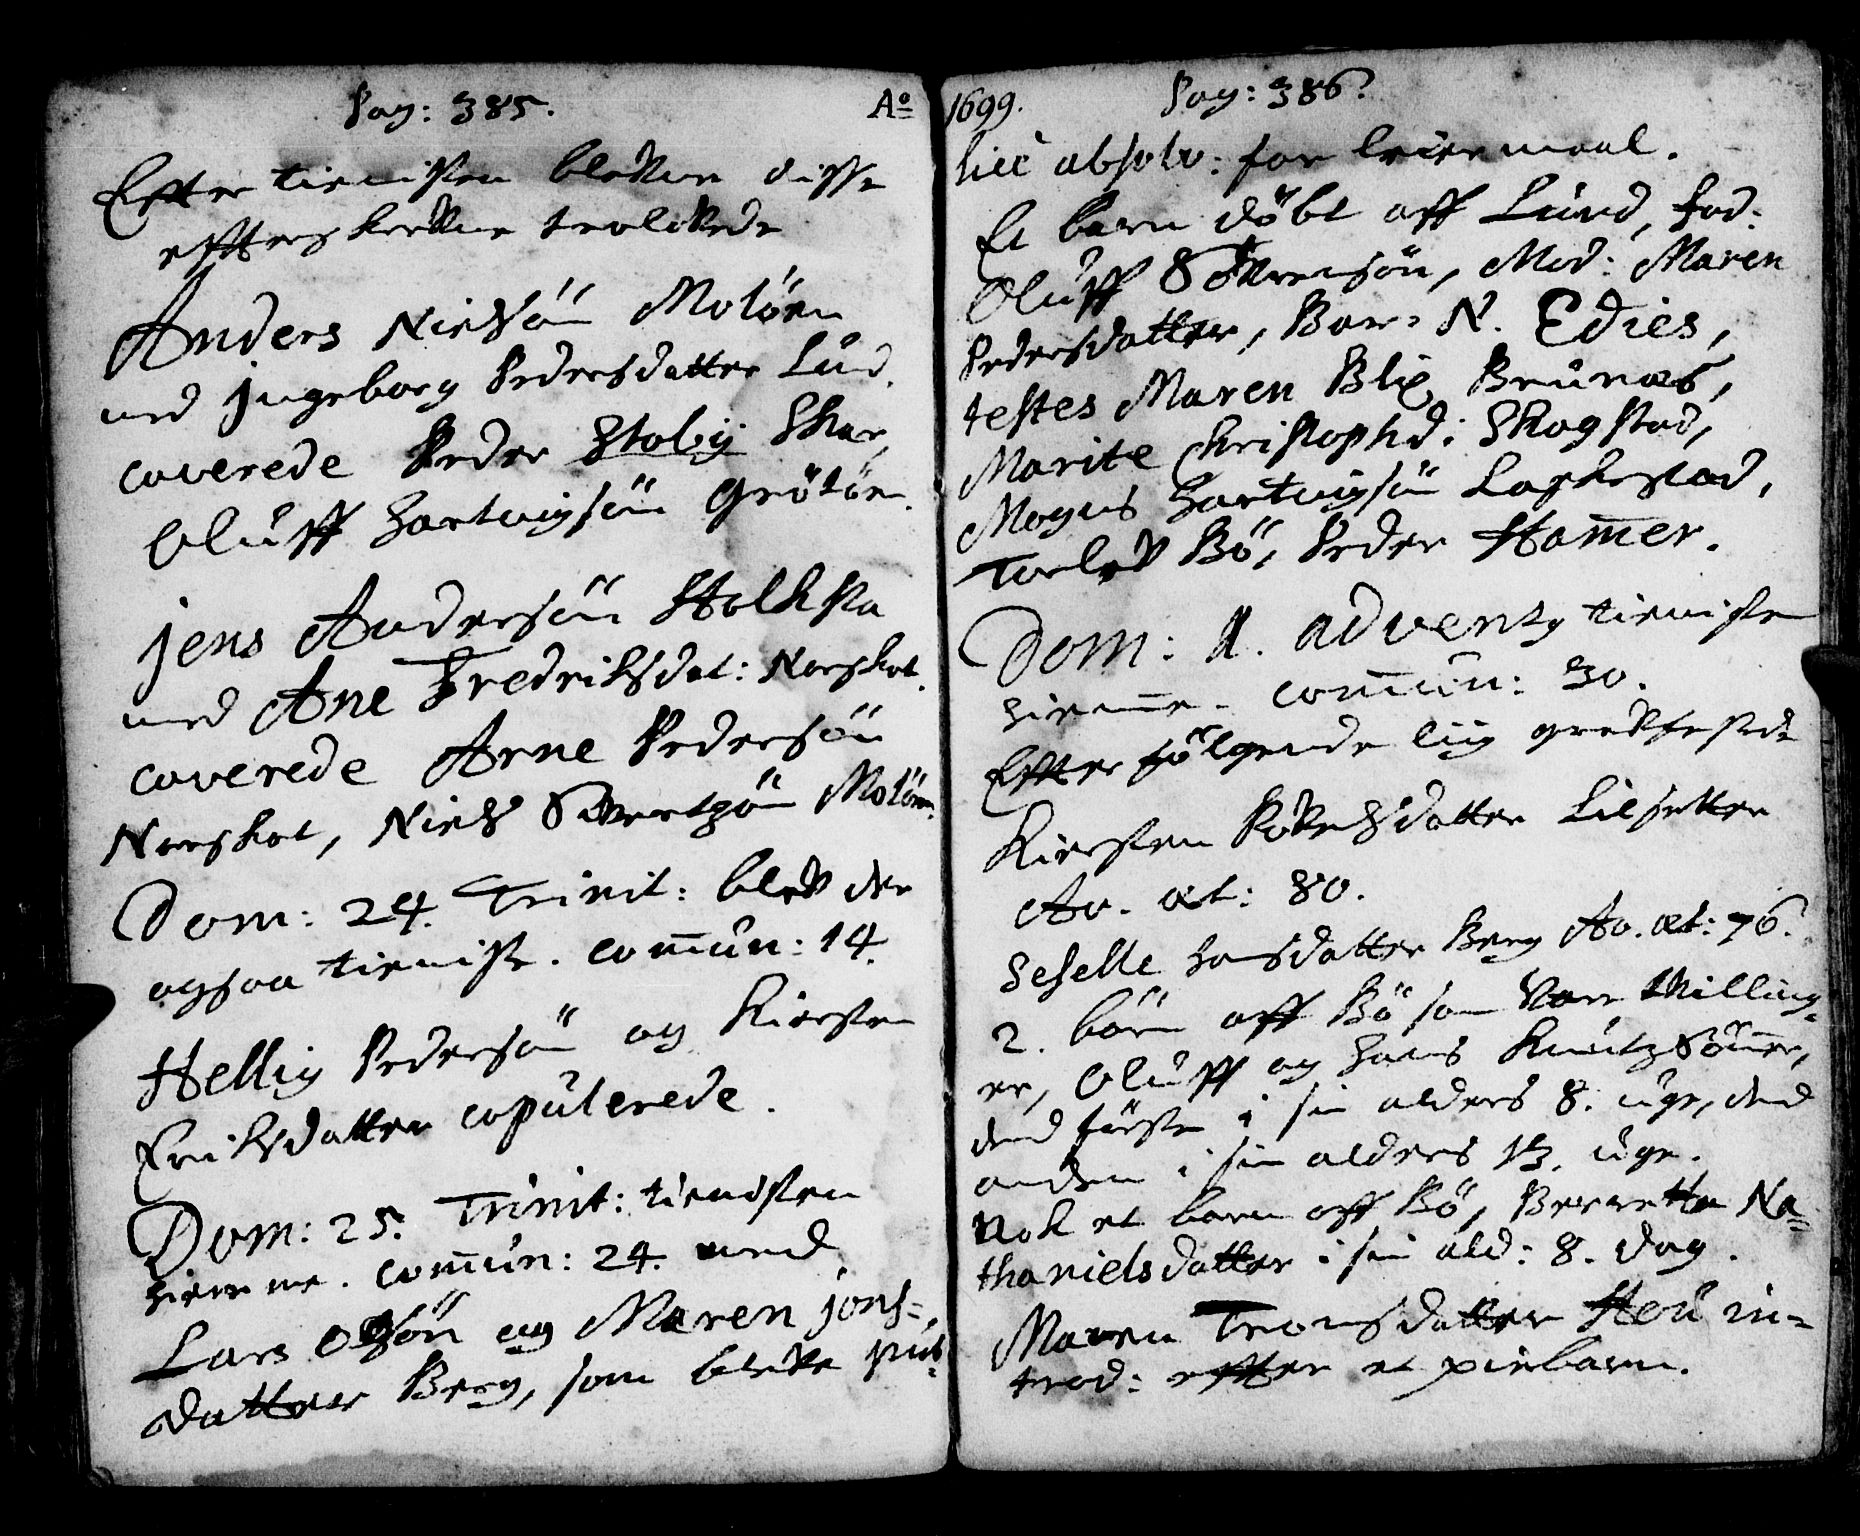 Pag: 385. Ao
Efter tienisten blefve disse
efterskrefne trolofvede
Anders Nielsön Molöen
med Jngeborg Pedersdatter Lund.
caverede Peder Stobÿ Skar,
Oluff Hartvigsön Grötöen.
Jens Andersön Holksta
med Ane Fredriksdat: Norskot.
caverede Arne Pedersön
Norskot, Niels Sivertzön Molöen.
Dom: 24. Trinit: blef der
ogsaa tieniste. com̅un: 14.
Hellig Pedersön og Kiersten
Eriksdatter copulerede.
Dom: 25. Trinit: tienisten
hiemme. com̅un: 24. med
Lars Olsön og Maren Jons-
datter Berg, som blefve pub-
1699. Pag: 386.
licè absolv: for leiermaal.
Et barn döbt aff Lund, Fad:
Oluff Sörensön, Mod: Maren
Pedersdatter, Bar: N. Edies,
testes Maren Blix Brunæs,
Marite Christophd: Skogstad,
Mogens Hartvigsön Laskestad,
Torlef Bö, Peder Ham̅er.
Dom: 1. adventq tienisten
hiem̅e. com̅un: 30.
Efter fölgende liig grafestede
Kiersten Povelsdatter Lilsetter
An. æt: 80.
Seselle Hansdatter Berg An. æt: 76.
2. börn aff Bö som var tvilling-
er, Oluff og Hans Knutz Sön̅er,
dend förste i sin alders 8. uge, dend
anden i sin alders 13. uge.
Nok et barn aff Bö, Berretta Na-
thanielsdatter i sin ald: 8. dag.
Maren Tronsdatter Hou in-
trod: efter et piebarn.